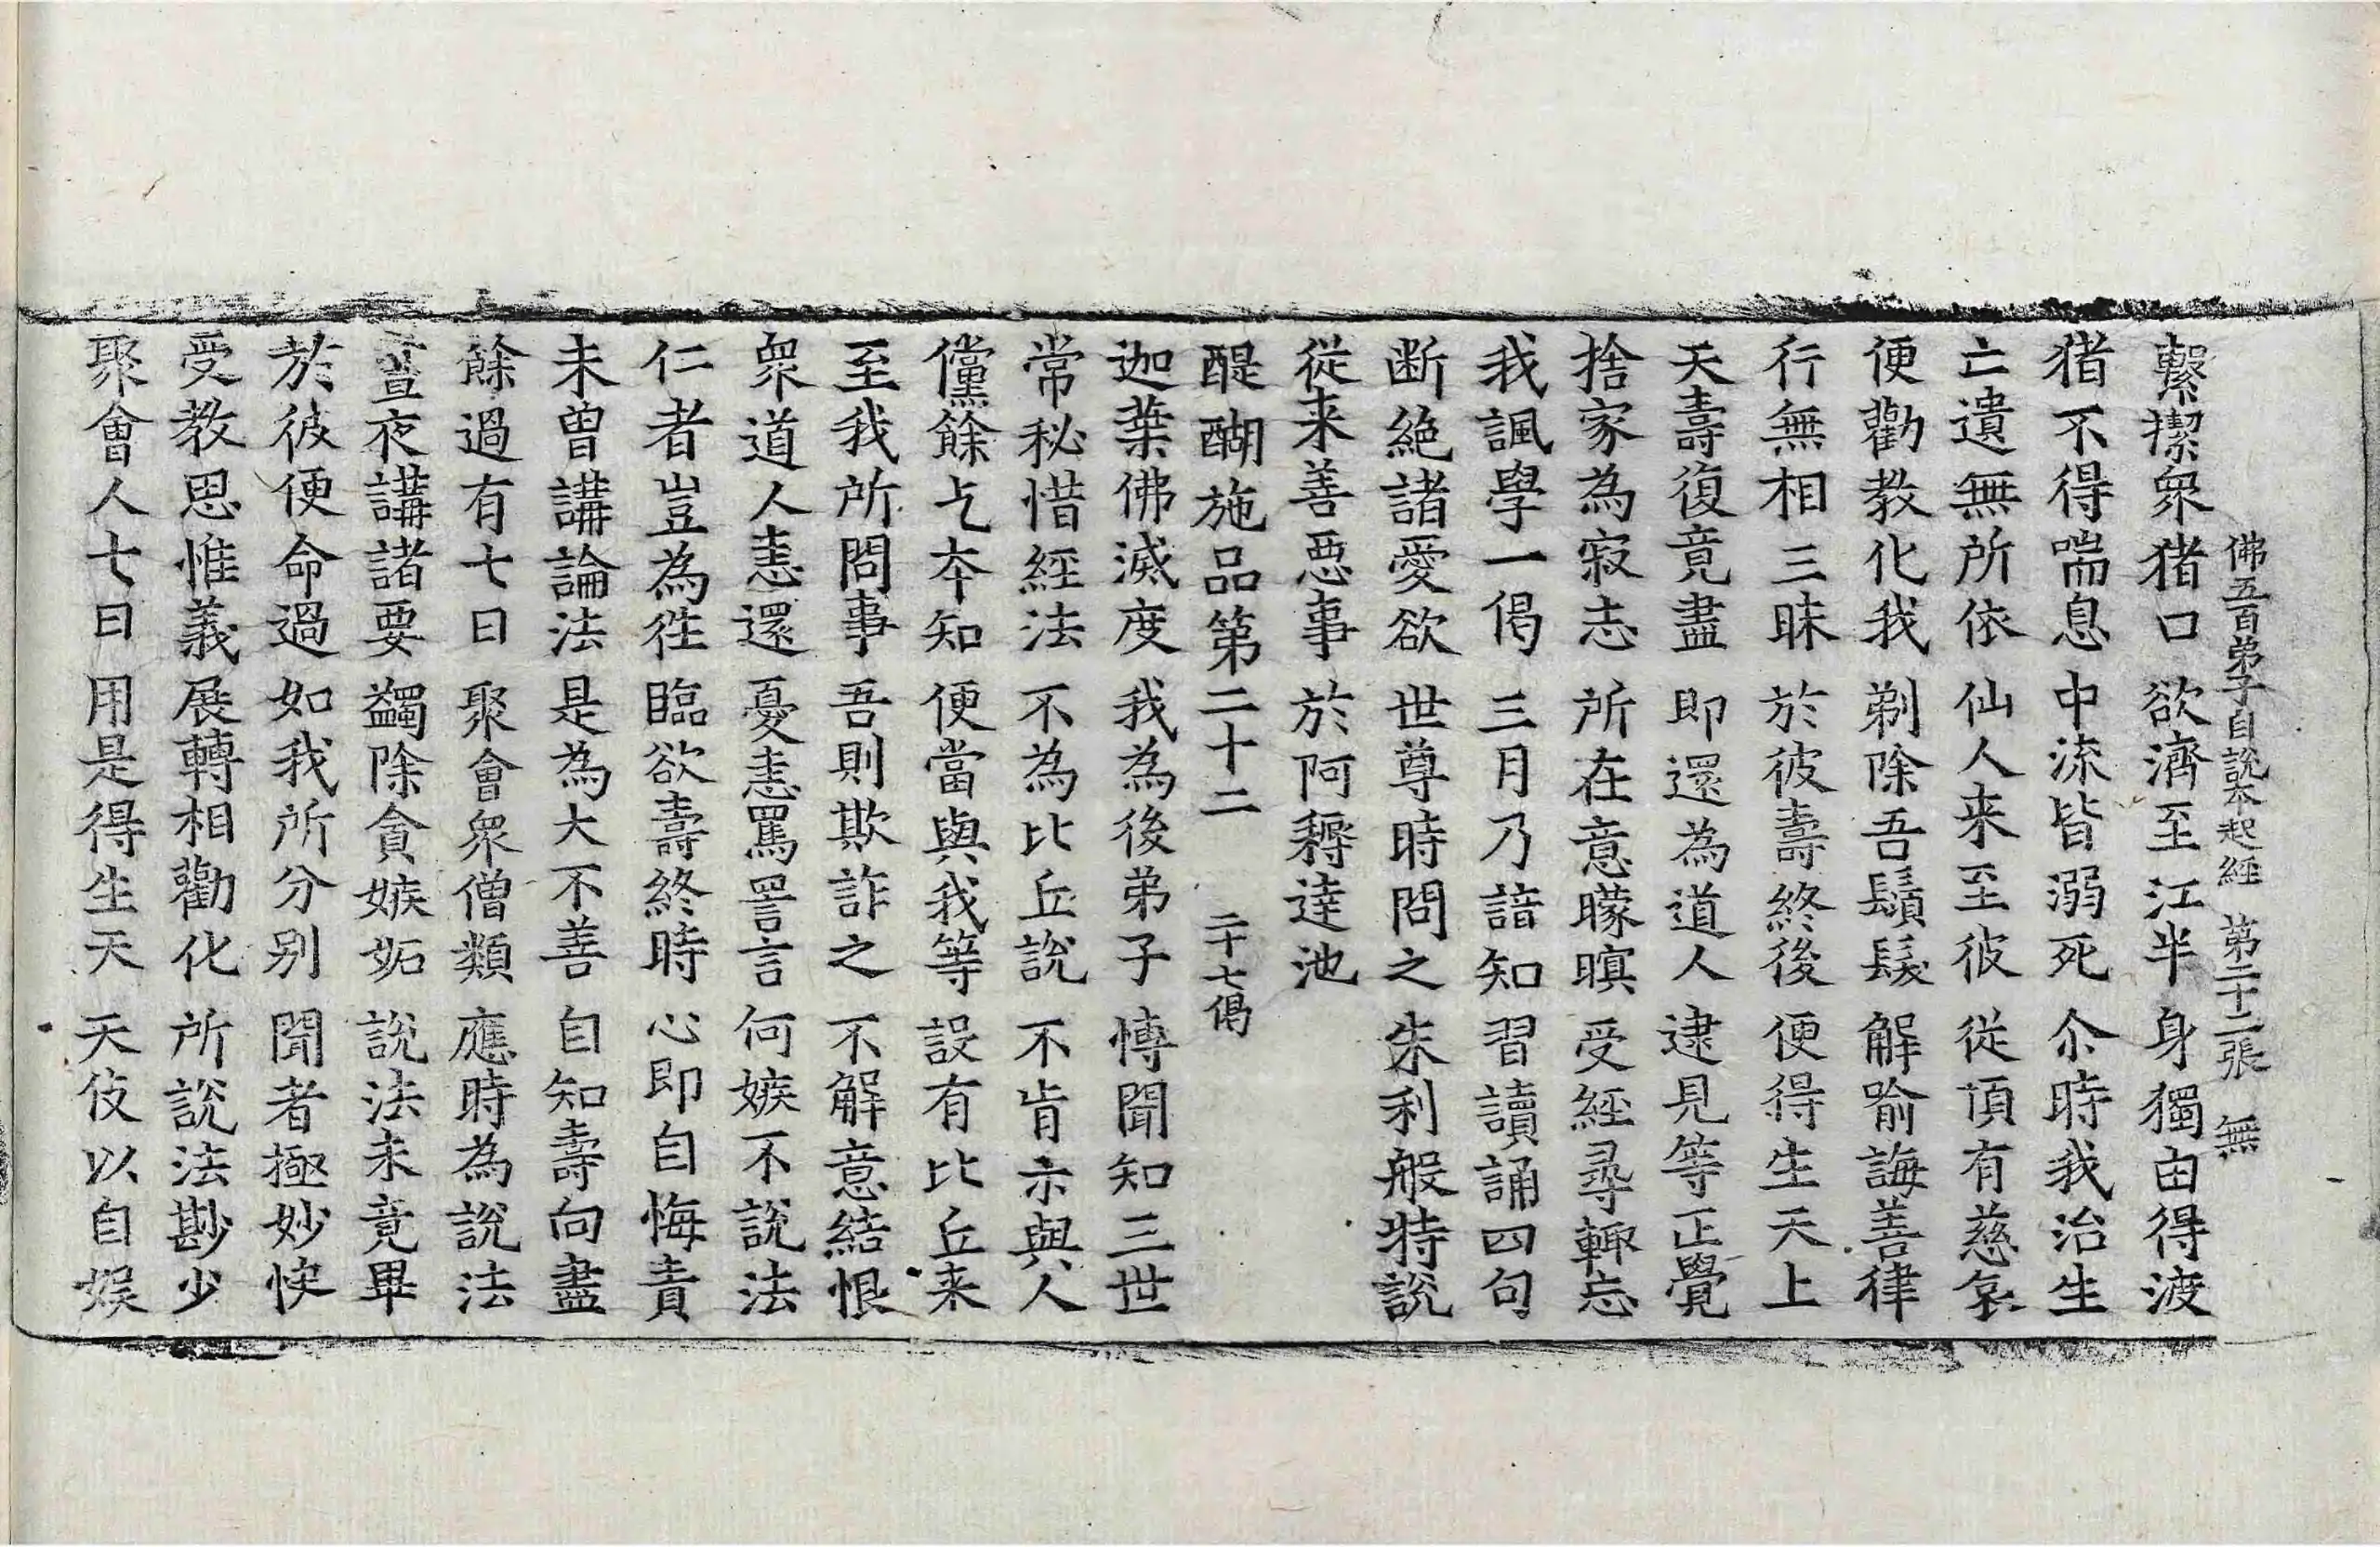 佛五百弟子自說本起經 第二十二張 無
繫㓗衆猪口 欲濟至江半 身獨由得渡
猪不得喘息 中流皆溺死 尒時我治生
亡遺無所依 仙人来至彼 從頂有慈哀
便勸教化我 剃除吾鬚髮 解喻誨善律
行無相三昧 於彼壽終後 便得生天上
天壽復竟盡 即還為道人 逮見等正覺
捨家為寂志 所在意曚暝 受經尋輙忘
我諷學一偈 三月乃諳知 習讀誦四句
断絶諸愛欲 世尊時問之 朱利般特說
從来善惡事 於阿耨達池
醍醐施品第二十二 二十七偈
迦葉佛滅度 我為後弟子 博聞知三世
常秘惜經法 不為比丘說 不肯示與人
儻餘乞夲知 便當與我等 設有比丘来
至我所問事 吾則欺詐之 不解意結恨
衆道人恚還 憂恚罵詈言 何嫉不說法
仁者豈為徃 臨欲壽終時 心即自悔責
未曾講論法 是為大不善 自知壽向盡
餘過有七日 聚會衆僧類 應時為說法
晝夜講諸要 蠲除貪嫉妬 說法未竟畢
於彼便命過 如我所分别 聞者極妙快
受教思惟義 展轉相勸化 所說法尠少
聚會人七日 用是得生天 天伎以自娱